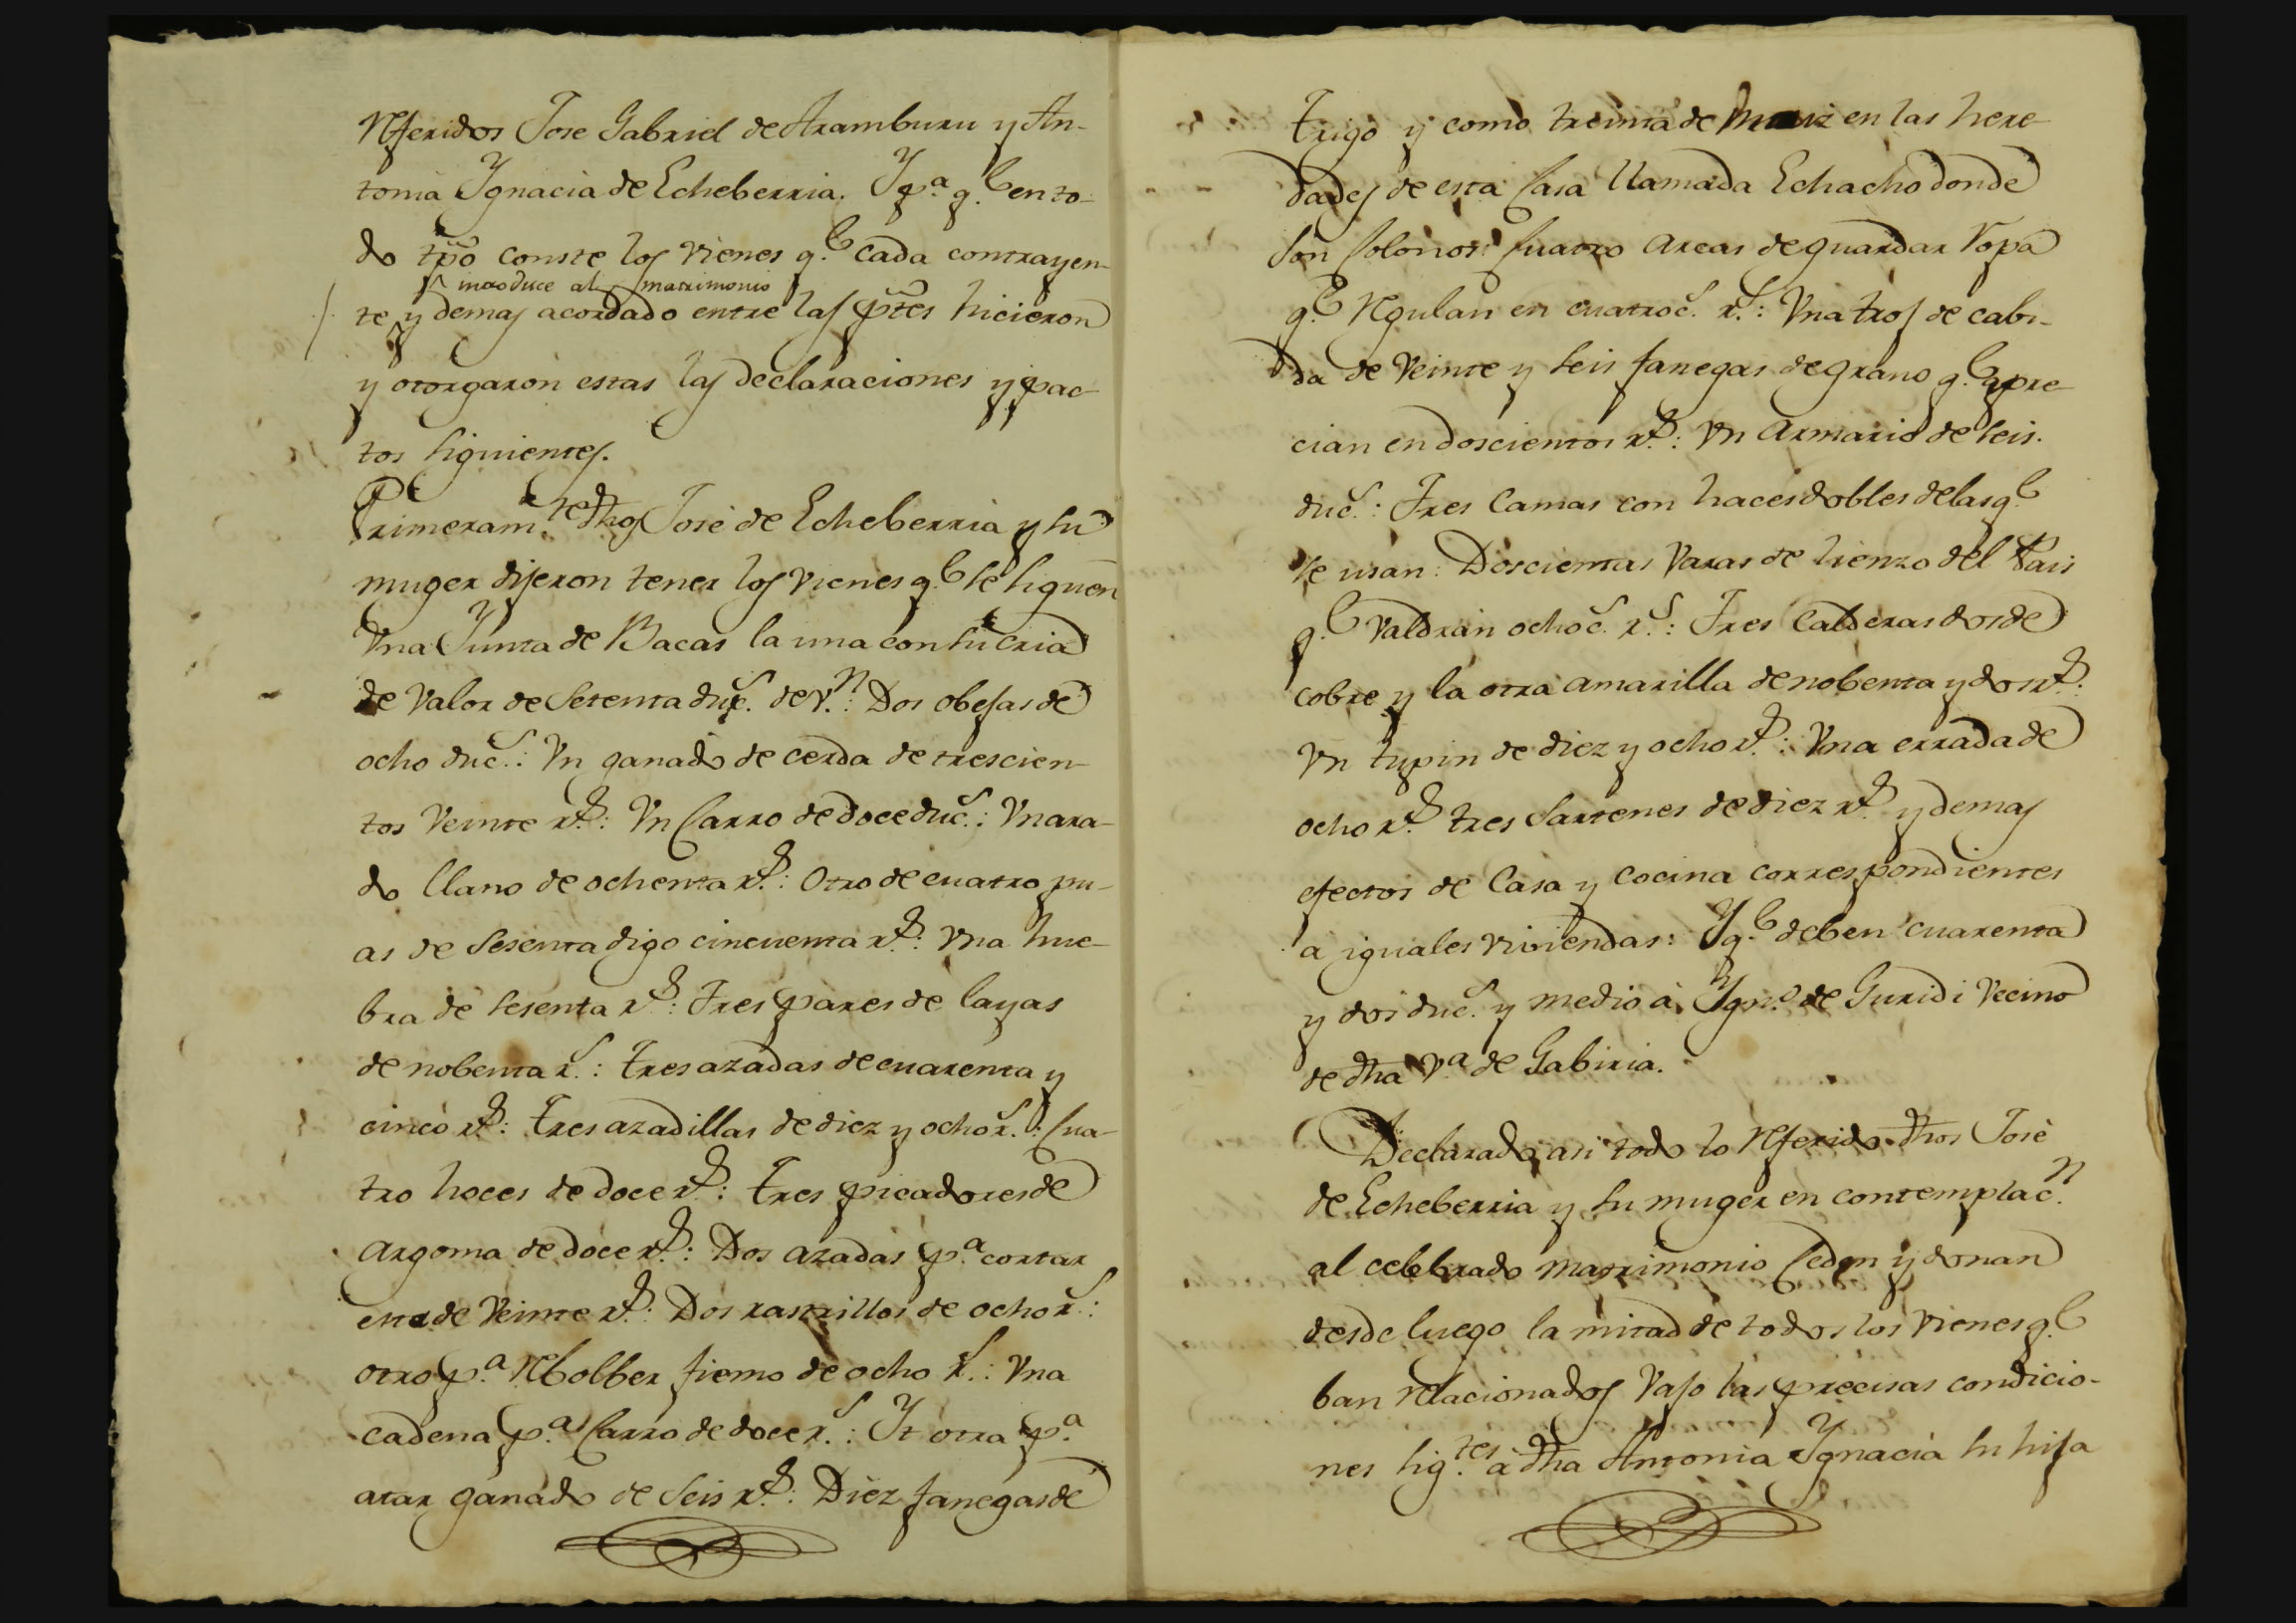 Referidos Jose Gabriel de Aramburu y An-
tonia Ygnacia de Echeberria. Y pª qe en to-
do tpõ conste los vienes qe cada contrayen-
introduce al matrimonio
te y demas acordado entre las ptẽs hicieron
y otorgaron estas las declaraciones y pac-
tos siguientes.
Primeramte dhos José de Echeberria y su
muger dijeron tener los vienes qe se siguen
Una Junta de Bacas la una con su cria
de valor de Setenta ducs. de vn: Dos obejas de
ocho ducs.: Un ganado de cerda de trescien-
tos veinte rs.: Un Carro de doce ducs.: Un ara-
do llano de ochenta rs.: Otro de cuatro pu-
as de Sesenta digo cincuenta rs.: Una hue-
bra de sesenta rs.: Tres pares de layas
de nobenta rs.: tres azadas de cuarenta y
cinco rs.: tres azadillas de diez y ocho rs.: Cua-
tro hoces de doce rs.: tres picadores de
argoma de doce rs.: Dos azadas pª cortar
de veinte rs.: Dos rastrillos de ocho rs.:
otro pª Rebolber fiemo de ocho rs.: Una
cadena pª Carro de doce rs.: Yt otra pª
atar ganado de Seis rs.: Diez fanegas de
trigo y como treinta de maiz en las here-
dades de esta Casa llamada Echacho donde
son Colonos: Cuatro arcas de guardar ropa
qe Regulan en cuatrocs. rs.: Una troj de cabi-
da de veinte y seis fanegas de grano qe apre-
cian en doscientos rs.: Un Armario de seis
ducs.: Tres Camas con haces dobles de las qe
se usan: Doscientas varas de lienzo del Pais
qe valdrán ochocs. rs.: Tres Calderas dos de
cobre y la otra amarilla de nobenta y dos rs.:
Un tupin de diez y ocho rs.: Una errada de
ocho rs. tres Sartenes de diez rs. y demas
efectos de Casa y cocina correspondientes
a iguales viviendas: Y qe deben cuarenta
y dos ducs. y medio á Ygno. de Guridi vecino
de dha vª de Gabiria.
Declarado asi todo lo Referido dhos José
de Echeberria y su muger en contemplacn.
al celebrado matrimonio Ceden y donan
desde luego la mitad de todos los vienes qe
ban relacionados vajo las precisas condicio-
nes sigtes. á dha Antonia Ygnacia su hija